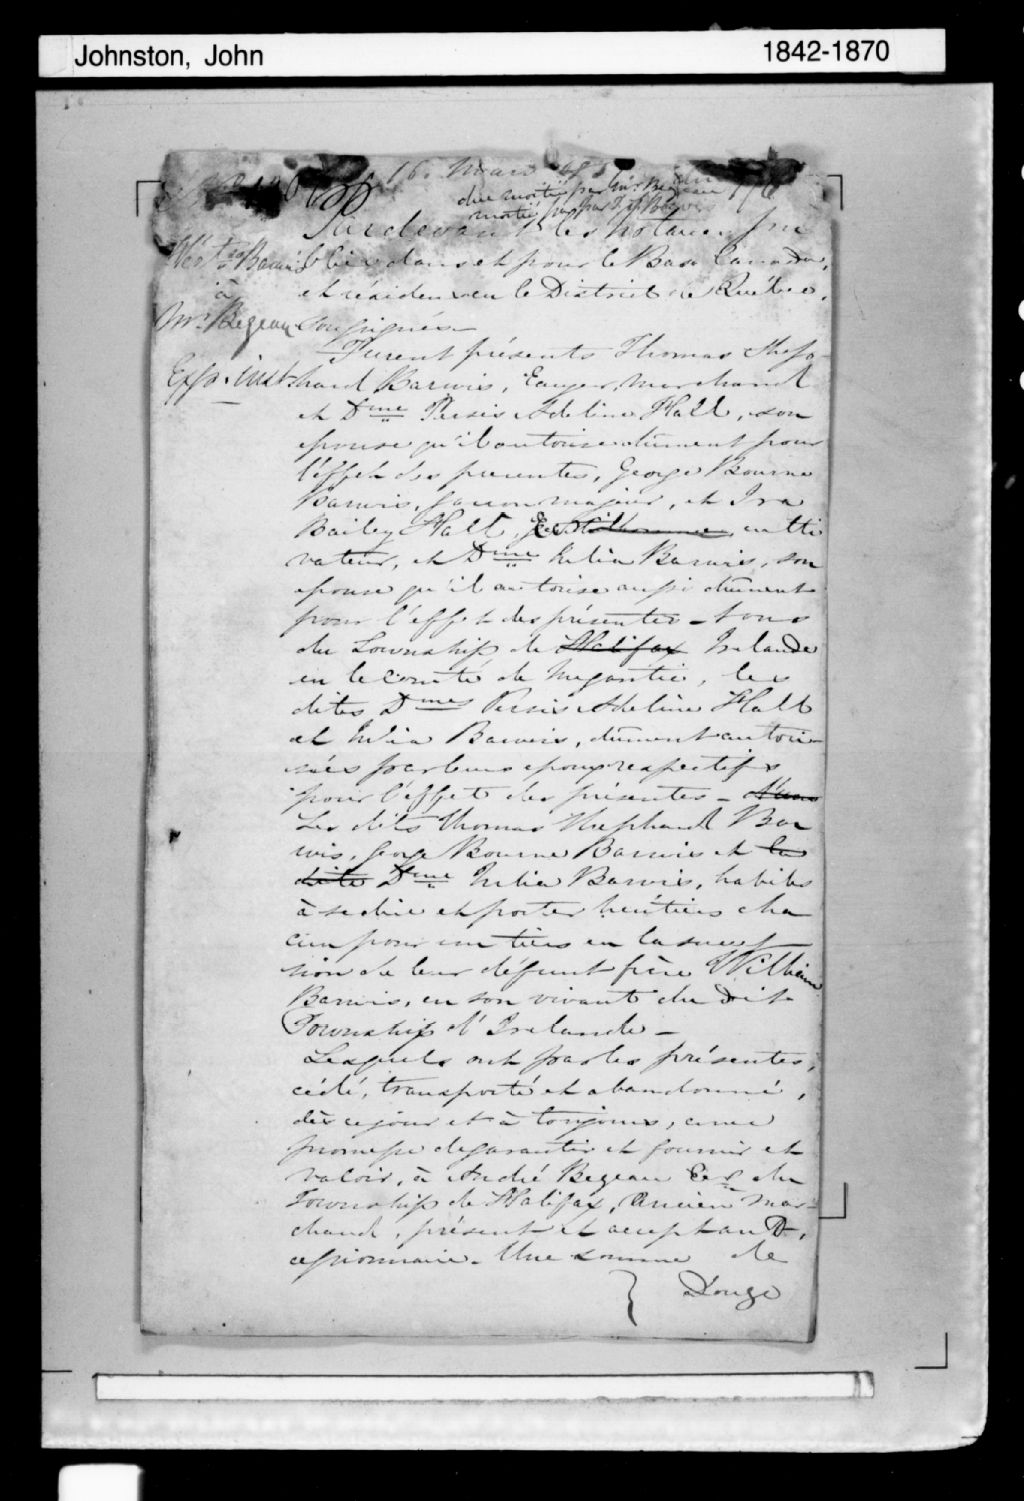 Johnston, John 1842-1870
16. Mars
due moitié par Mr Begeau
moitié par
Pardevant les notaires pu
blics dans et pour le Bas Canada,
et résidents en le District de Québec,
soussignés.
Barwis
à
Mr. Begeau
Exp. inst
Furent présents Thomas Shep-
hard Barwis, Ecuyer, Marchand
et Dme Persis Adeline Hall, son
epouse qu'il autorise dûment pour
l'effet des presentes, George Bourne
Barwis, garcon majeur, et Ira
Bailey Hall, culti
vateur, et Dme Julia Barwis, son
epouse qu'il autorise aussi dûment
pour l'effet des présentes - tous
du Township de Halifax Irlande
en le comté de Megantic, les
dites Dmes Persis Adeline Hall
et Julia Barwis, dûment autori-
sées par leurs epoux respectifs
pour l'effet des présentes -
Les dits Thomas Shephard Bar
wis, George Bourne Barwis et la
dite Dme Julia Barwis, habiles
à se dire et porter héritiers cha
cun pour un tiers en la succes
sion de leur défunt frère William
Barwis, en son vivant du dit
Township d'Irlande -
Lesquels ont par les présentes,
cédé, transporté et abandonné,
dès ce jour et à toujours, avec
promesse de garantir et fournir et
valoir, à André Begeau Ecr du
Township de Halifax, Ancien mar-
chand, présent et acceptant,
cessionnaire. Une somme de
Douze